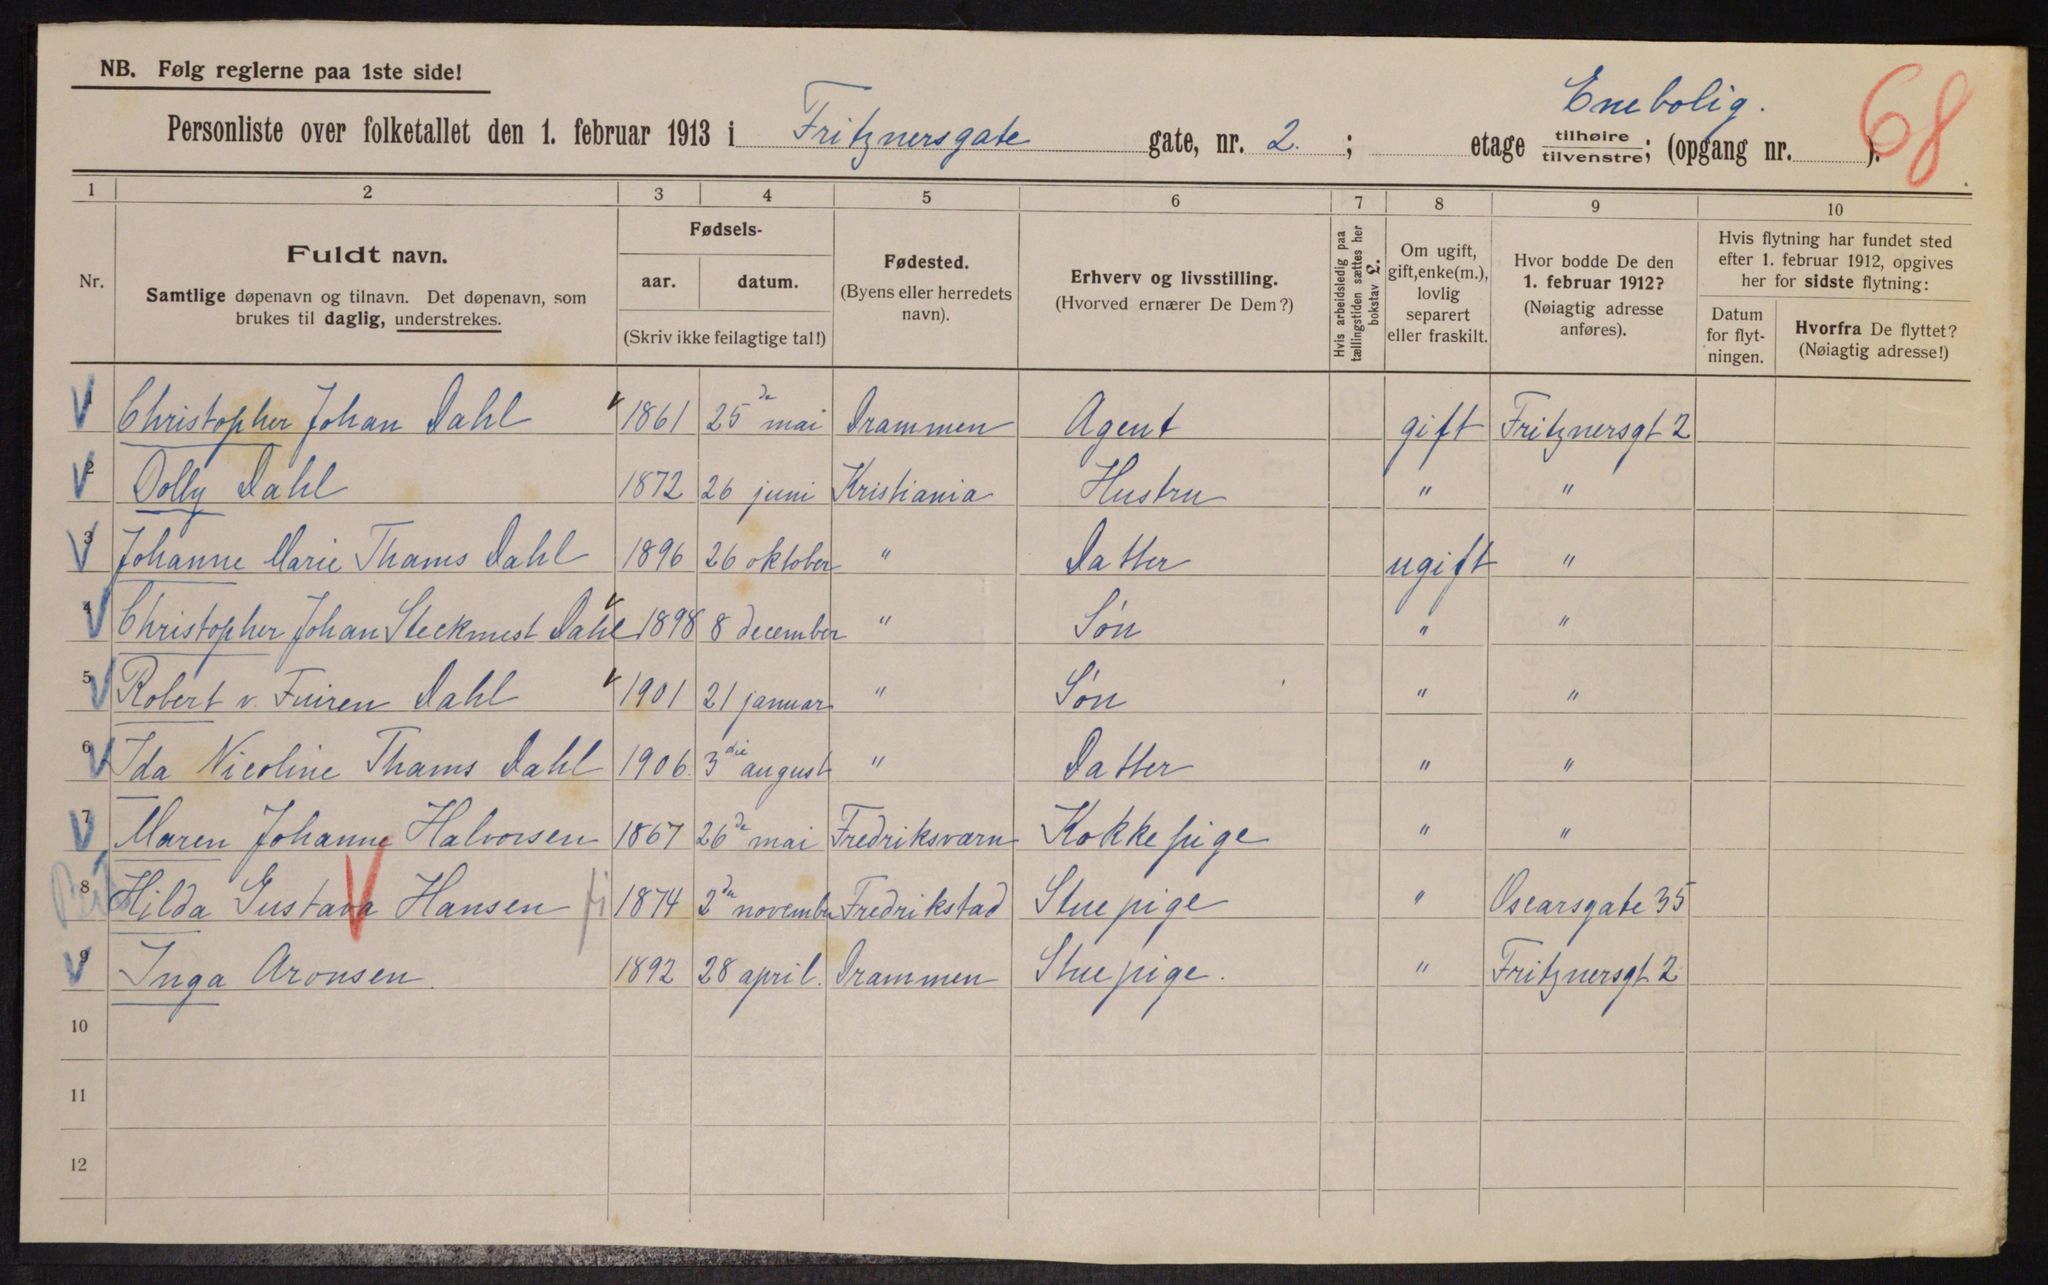 NB. Følg reglerne paa 1ste side!
Enebolig.
68
Personliste over folketallet den 1. februar 1913 i Fritznersgate gate, nr. 2. ; etage tilhøire/tilvenstre; (opgang nr. ).
1 2 3 4 5 6 7 8 9 10
Nr.
Fuldt navn.
Samtlige døpenavn og tilnavn. Det døpenavn, som
brukes til daglig, understrekes.
Fødsels-
aar. datum.
(Skriv ikke feilagtige tal!)
Fødested.
(Byens eller herredets
navn).
Erhverv og livsstilling.
(Hvorved ernærer De Dem?)
Hvis arbeidsledig paa
tællingstiden sættes her
bokstav L.
Om ugift,
gift, enke(m.),
lovlig
separert
eller fraskilt.
Hvor bodde De den
1. februar 1912?
(Nøiagtig adresse
anføres).
Hvis flytning har fundet sted
efter 1. februar 1912, opgives
her for sidste flytning:
Datum
for flyt-
ningen.
Hvorfra De flyttet?
(Nøiagtig adresse!)
1 Christopher Johan Dahl 1861 25de mai Drammen Agent gift Fritznersgt 2
2 Dolly Dahl 1872 26 juni Kristiania Hustru " "
3 Johanne Marie Thams Dahl 1896 26 oktober " Datter ugift "
4 Christopher Johan Steckmest Dahl 1898 8 december " Søn " "
5 Robert v. Fuiren Dahl 1901 21 januar " Søn " "
6 Ida Nicoline Thams Dahl 1906. 3die august " Datter " "
7 Maren Johanne Halvorsen 1867 26de mai Fredriksværn Kokkepige " "
8 Hilda Gustava Hansen 1874 2den november Fredrikstad Stuepige " Oscarsgate 35
9 Inga Aronsen. 1892 28 april. Drammen Stuepige. " Fritznersgt 2
10
11
12